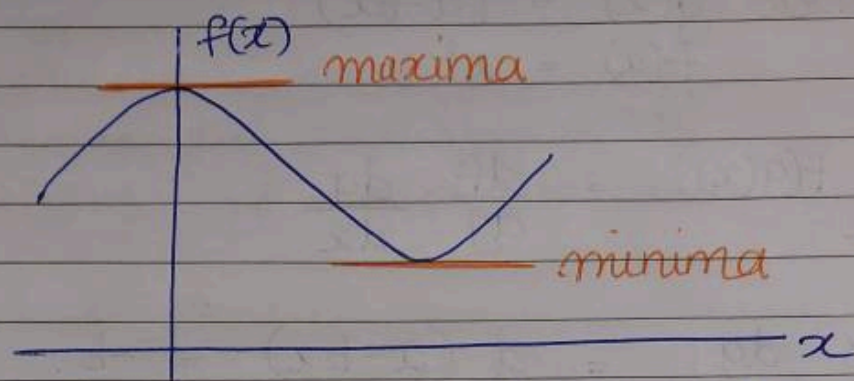 f(x)
maxima
minima
x